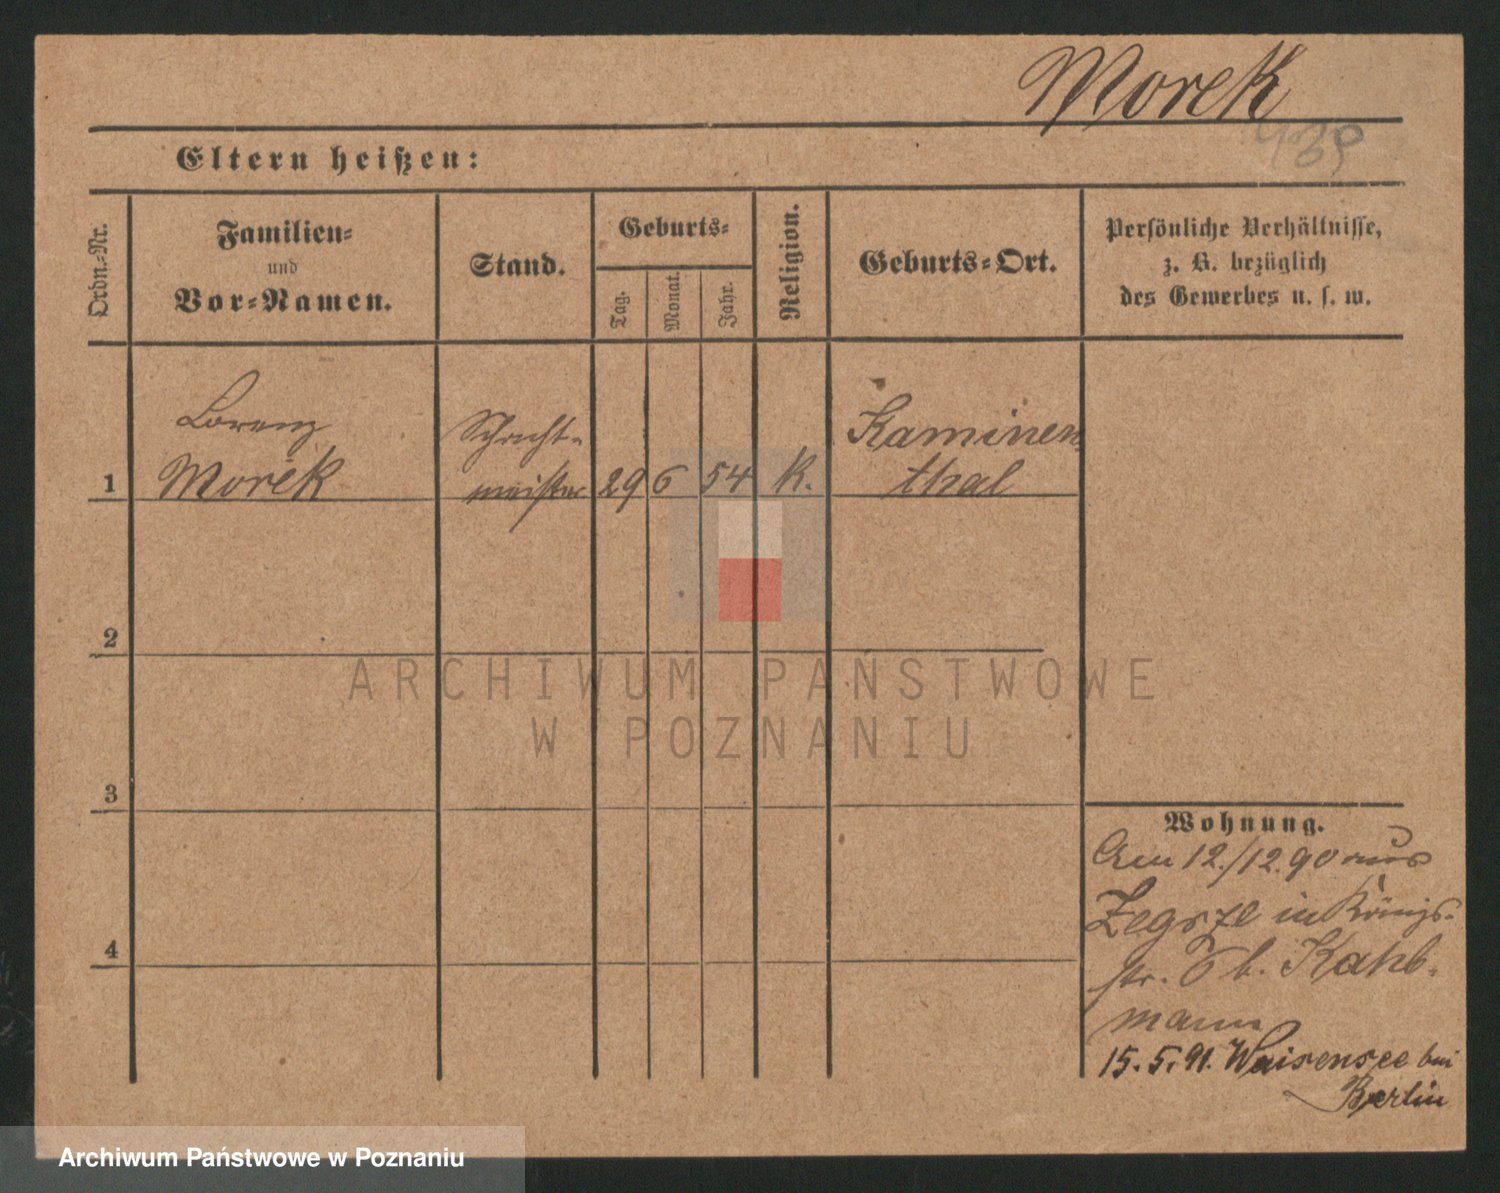 Morek
Eltern heißen:
Ordn.-Nr.
Familien-
und
Vor-Namen.
Stand.
Geburts-
Tag.
Monat.
Jahr.
Religion.
Geburts-Ort.
Persönliche Verhältnisse,
z. B. bezüglich
des Gewerbes u. s. w.
1
Lorenz
Morek
Schacht-
meister
29
6
54
K.
Kaminen
thal
2
3
4
ARCHIWUM PAŃSTWOWE
W POZNANIU
Wohnung.
Am 12./12.90 aus
Zegrze in Königs-
str. 6 b. Kahl-
mann
15.5.91. Waisensee bei
Berlin
Archiwum Państwowe w Poznaniu